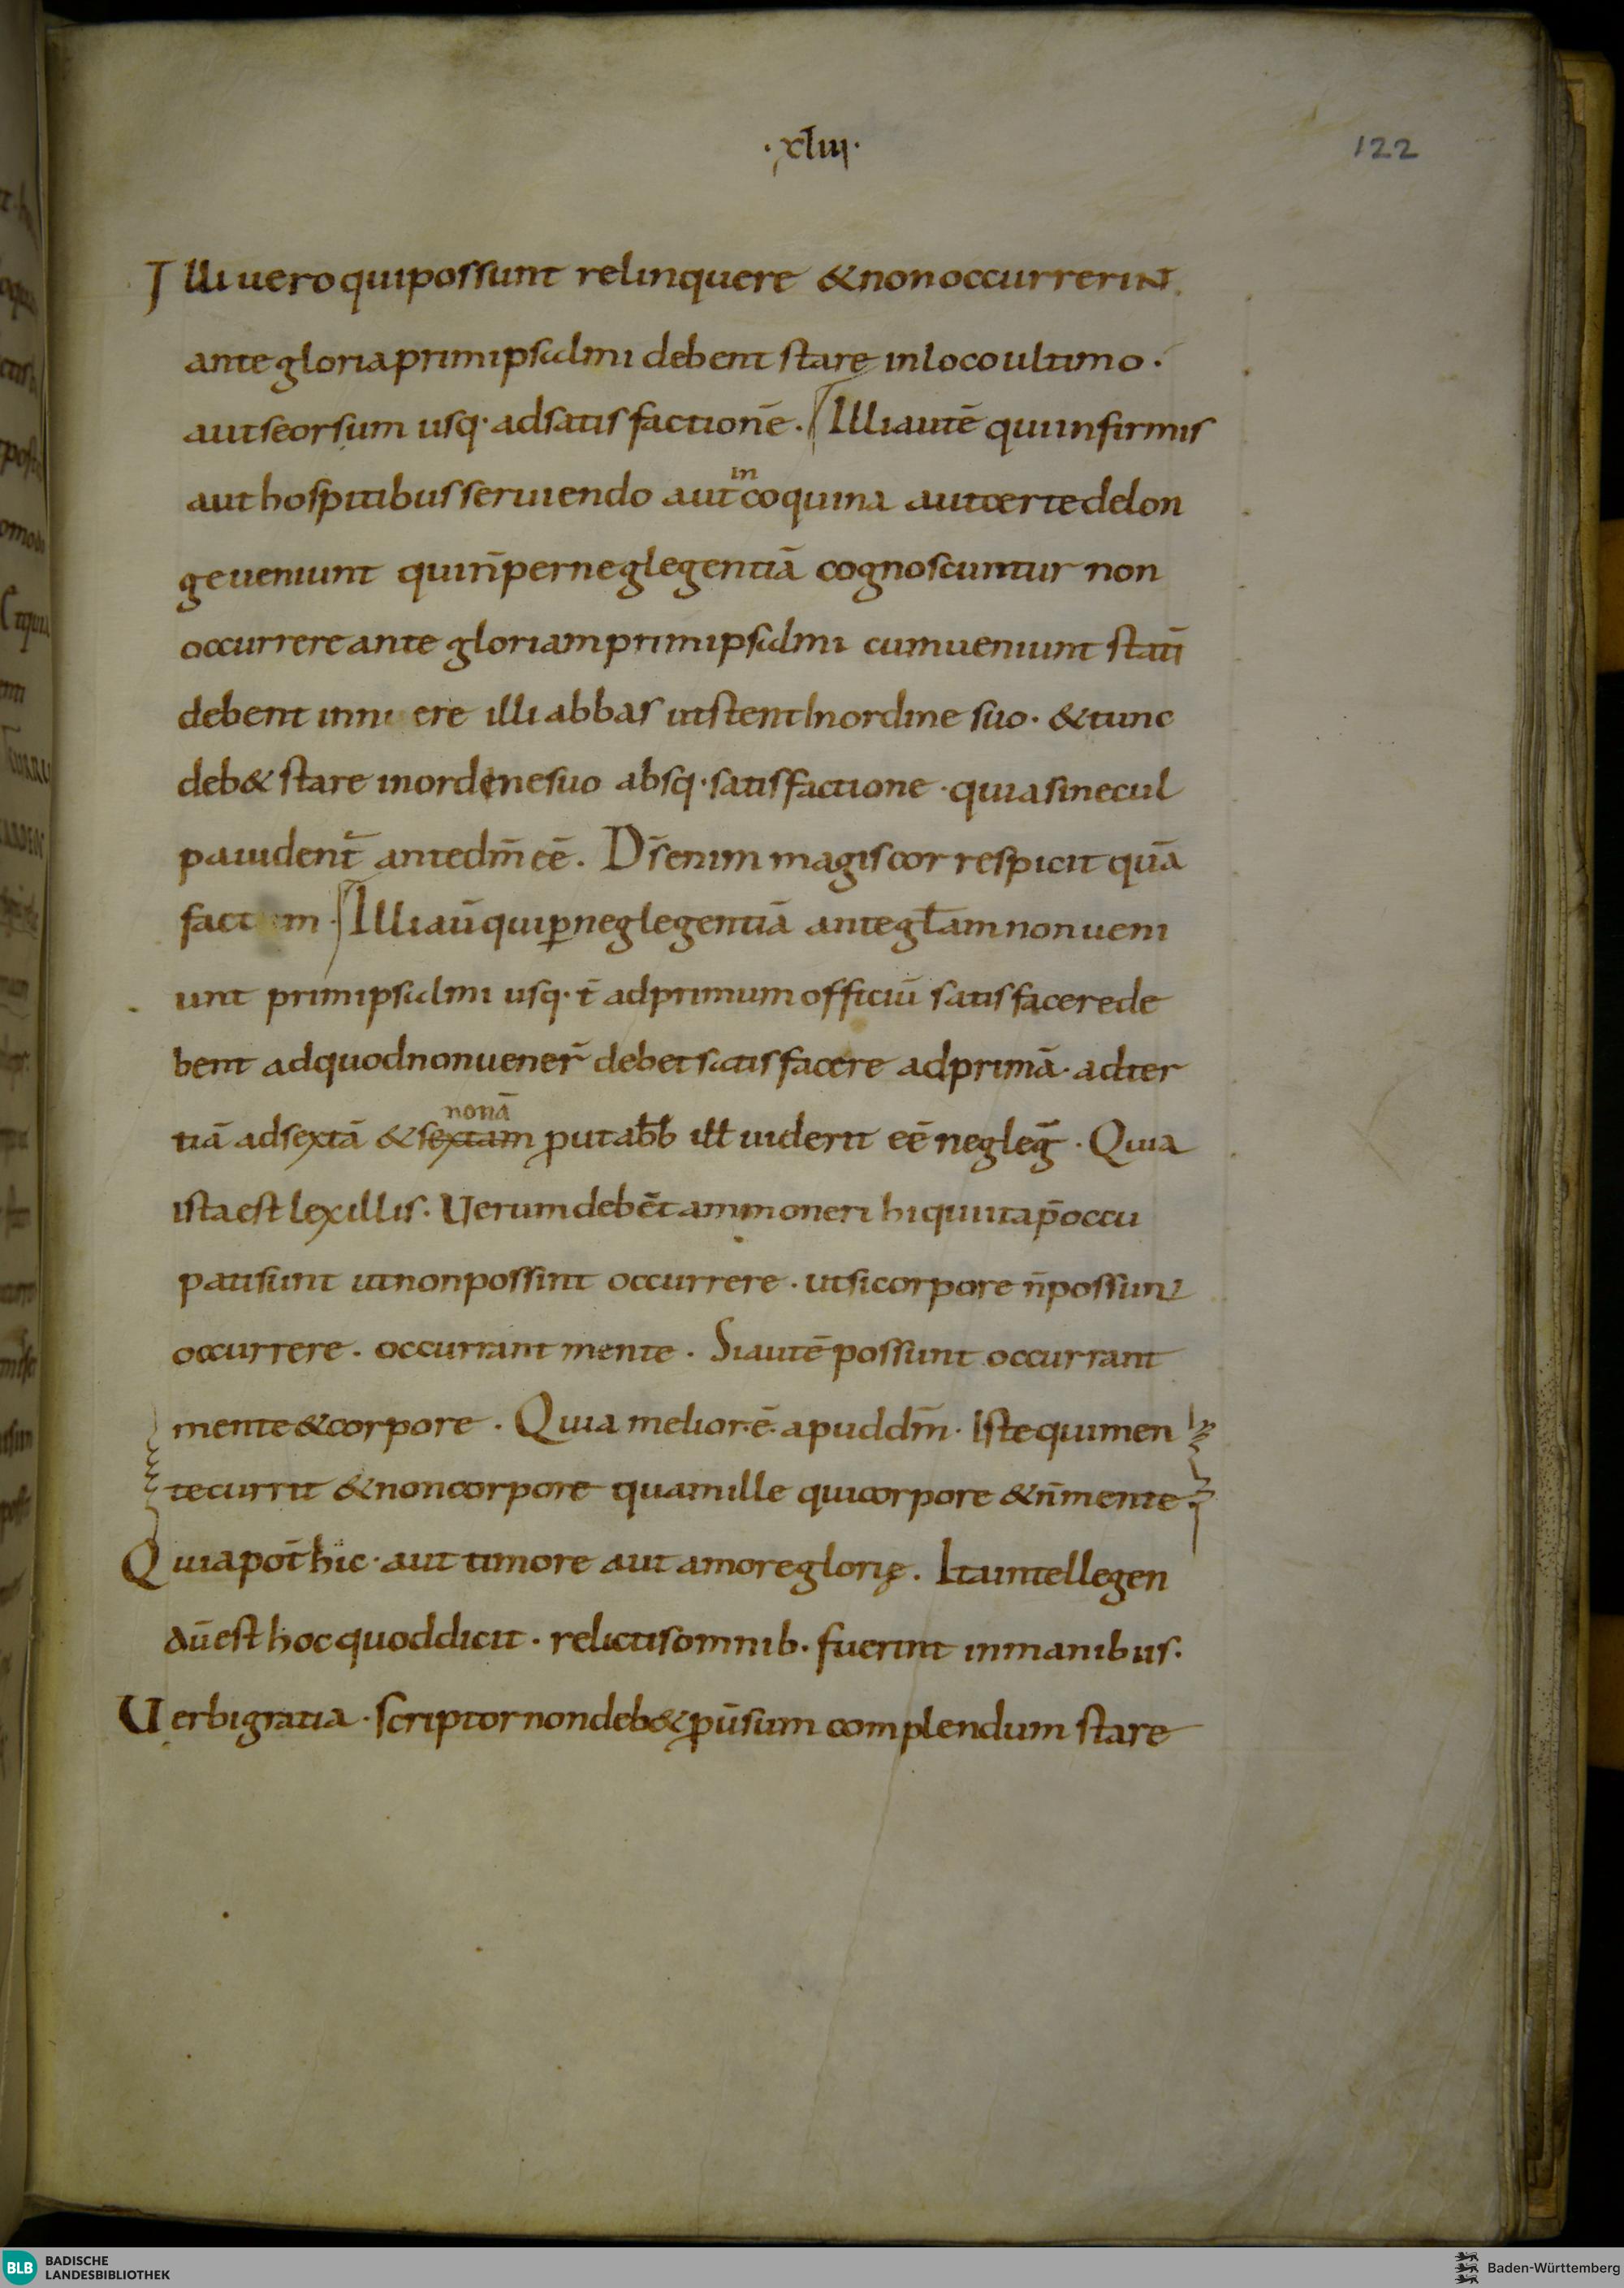 ·xliii·
122
Illi uero qui possunt relinquere & non occurrerint
ante gloria primi psalmi debent stare in loco ultimo·
aut seorsum usq· ad satisfactionē. Illi autē qui infirmis
in
aut hospitibus seruiendo aut coquina aut certe de lon
ge ueniunt qui n̄ per neglegentiā cognoscuntur non
occurrere ante gloriam primi psalmi cum ueniunt stati
debent illi abbas ut stent In ordine suo· & tunc
deb& stare in ordine suo absq· satisfactione· quia sine cul
pa uident̄ ante dm̄ eē. Ds̄ enim magis cor respicit quā
Illi aū qui ꝑ neglegentiā ante gƚam non ueni
unt primi psalmi usq· t̄ ad primum officiū satisfacere de
bent ad quod non uener̄ debet satisfacere ad primā· ad ter
nonā
tiā ad sextā & sextam ꝓut abb̄ iƚƚ uiderit eē negleḡ· Quia
ista est lex illis. Uerum debēt ammoneri hi qui ita p̄occu
pati sunt ut non possint occurrere· ut si corpore n̄ possunt
occurrere. occurrant mente. Si autē possunt occurrant
mente & corpore. Quia melior·ē· apud dm̄· Iste qui men
te currit & non corpore quam ille qui corpore & n̄ mente·
Quia pot̄ hic· aut timore aut amore glorię. Ita intellegen
dū est hoc quod dicit· relictis omnib· fuerint in manibus·
Uerbi gratia· scriptor non deb& ꝓ ūsum complendum stare
BLB
BADISCHE
LANDESBIBLIOTHEK
Baden-Württemberg